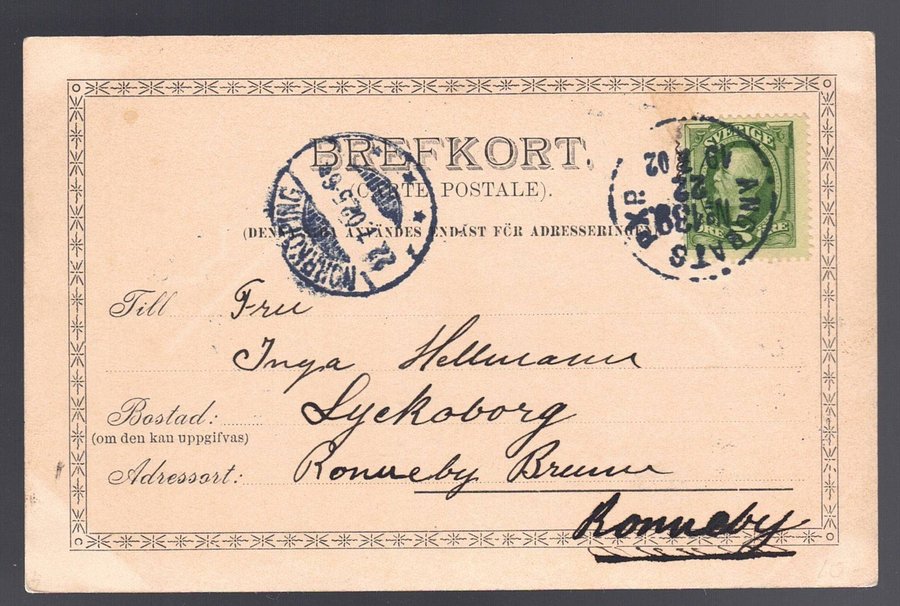 BREFKORT.
(CARTE POSTALE).
(DENNA SIDA ANVÄNDES ENDAST FÖR ADRESSERINGEN)
SVERIGE
ÅNGBÅTS PXP
No 139
22
19 02
NORRKÖPING
22 7 02
Till Fru
Inga Hellmann
Bostad: Lyckoborg
(om den kan uppgifvas)
Adressort: Ronneby Brunn
Ronneby